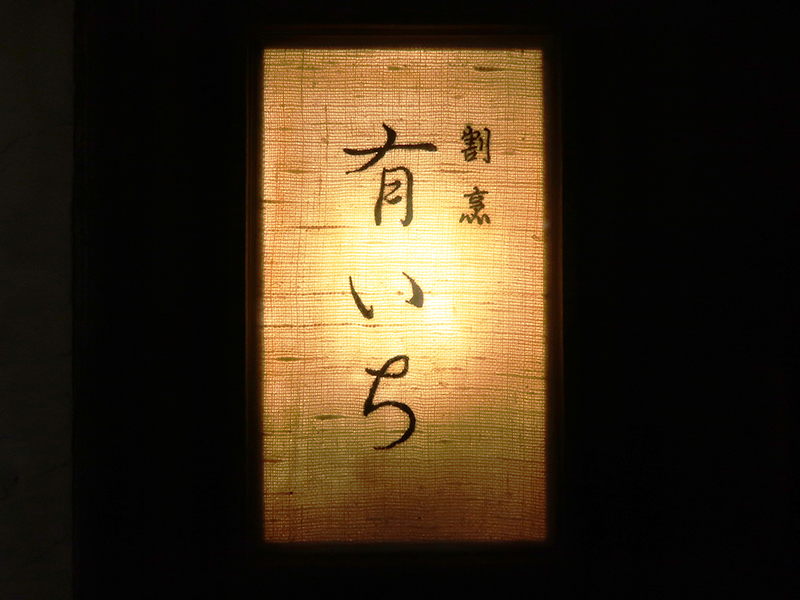 割烹
有いち